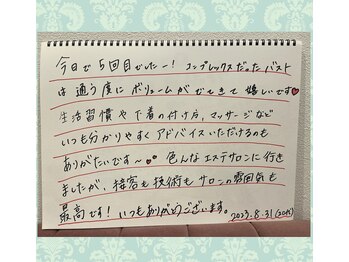 今日で5回目でしたー! コンプレックスだったバスト
は通う度にボリュームがでてきて嬉しいです♥
生活習慣や下着の付け方、マッサージなど
いつも分かりやすくアドバイスいただけるのも
ありがたいです〜♥♥ 色んなエステサロンに行き
ましたが、接客も技術もサロンの雰囲気も
最高です! いつもありがとうございます。 2023.8.31 (20代)